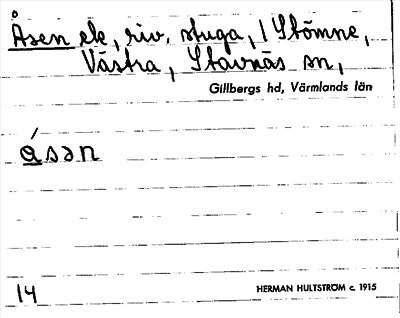 Åsen ek, riv. stuga, / Stömne,
Västra, Stavnäs sn,
Gillbergs hd, Värmlands län
ásən
14
HERMAN HULTSTRÖM c. 1915